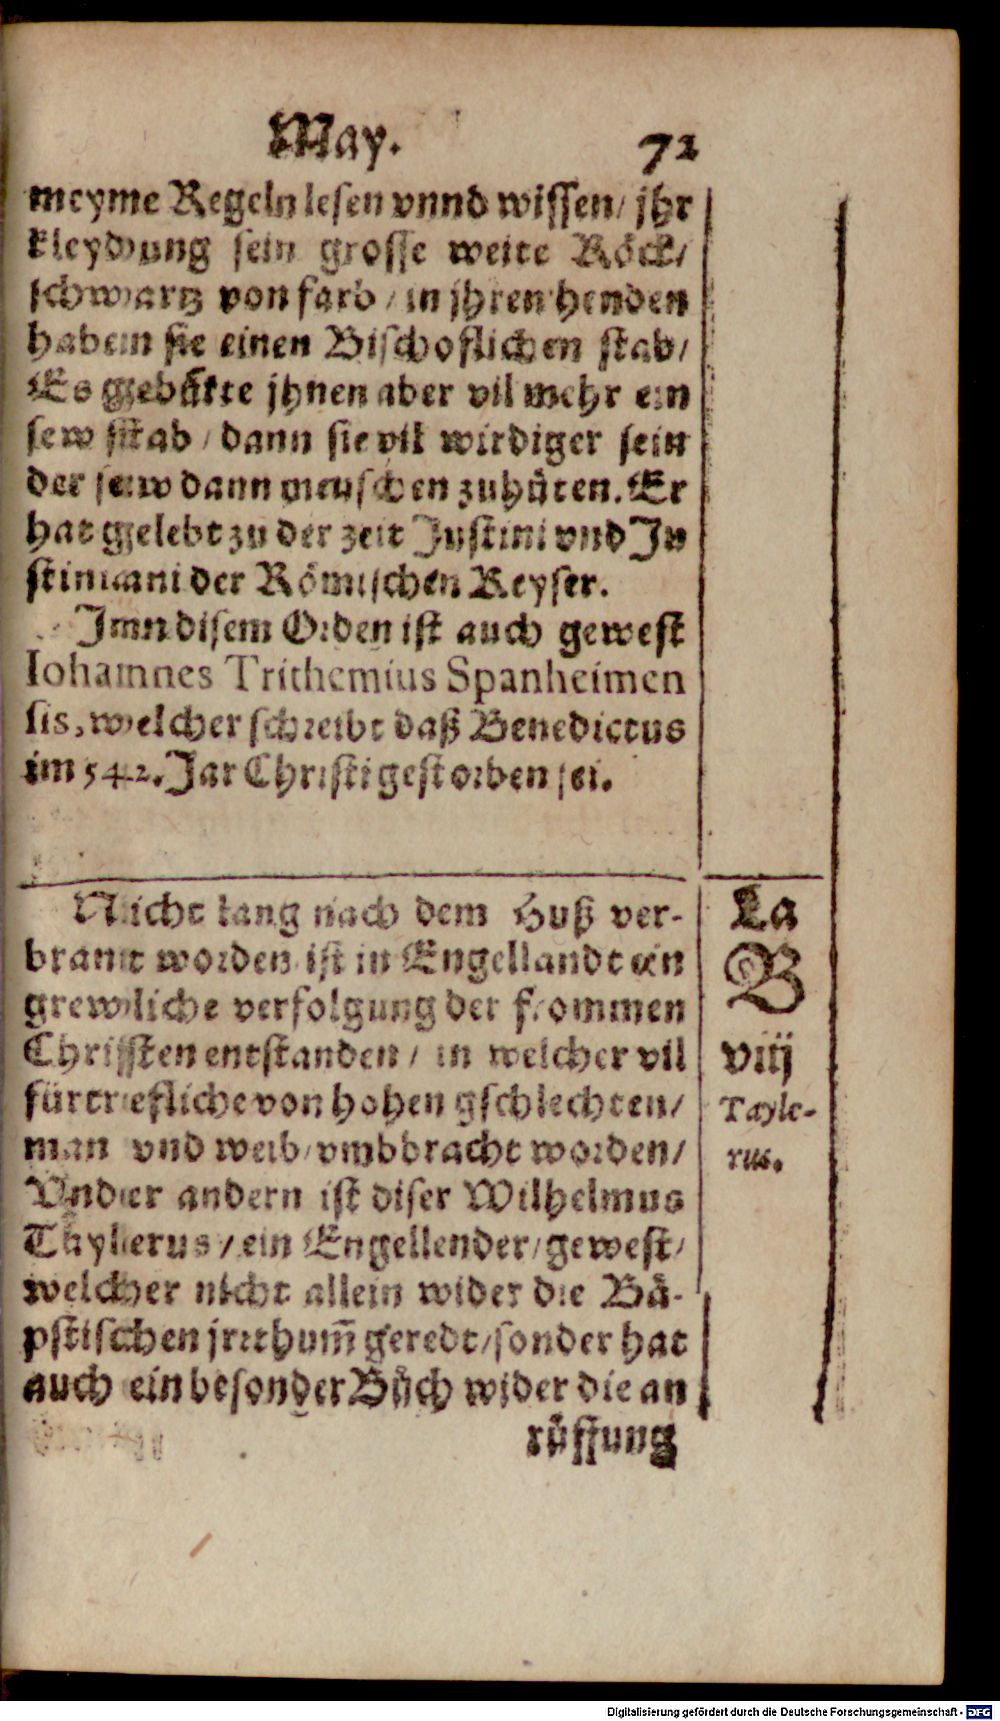 May.
72
meyme Regeln lesen vnnd wissen/ jhr
kleydung sein grosse weite Röck/
schwartz von farb / in jhren henden
haben sie einen Bischoflichen stab/
Es gebůrte jhnen aber vil mehr ein
sew stab / dann sie vil wirdiger sein
der sew dann menschen zuhůten. Er
hat gelebt zu der zeit Justini vnd Ju
stiniani der Römischen Keyser.
Inn disem Orden ist auch gewest
Iohannes Trithemius Spanheimen
sis, welcher schreibt daß Benedictus
im 542. Jar Christi gestorben sei.
Nicht lang nach dem Huß ver-
brannt worden ist in Engellandt ein
grewliche verfolgung der frommen
Christen entstanden / in welcher vil
fürtrefliche von hohen gschlechten/
man vnd weib/ vmbbracht worden/
Vnder andern ist diser Wilhelmus
Thylerus / ein Engellender/ gewest/
welcher nicht allein wider die Bå-
pstischen jrrthum̄ geredt/ sonder hat
auch ein besonder Bůch wider die an
růffung
La
B
viij
Tayle-
rus.
Digitalisierung gefördert durch die Deutsche Forschungsgemeinschaft - DFG